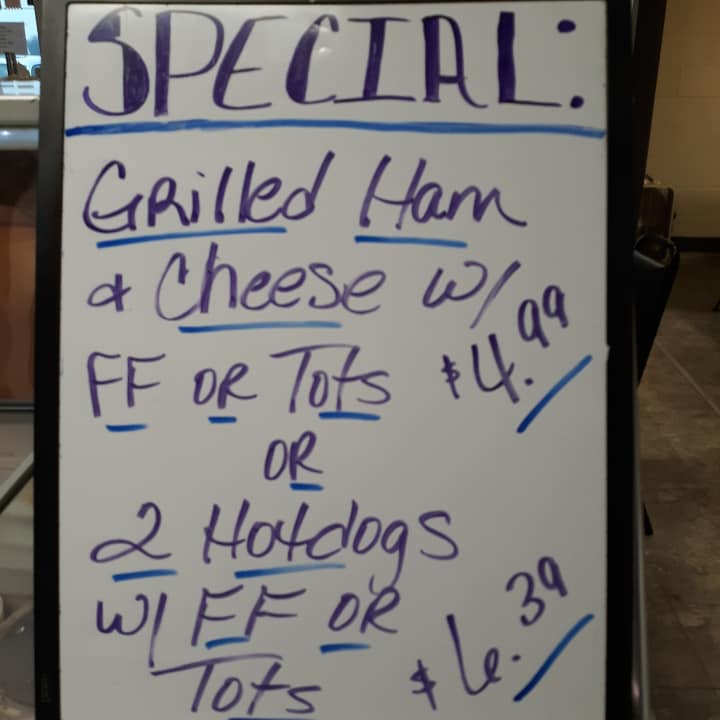 SPECIAL:
Grilled Ham
& Cheese w/
FF OR Tots $4.99
OR
2 Hotdogs
w/ FF OR
Tots $6.39